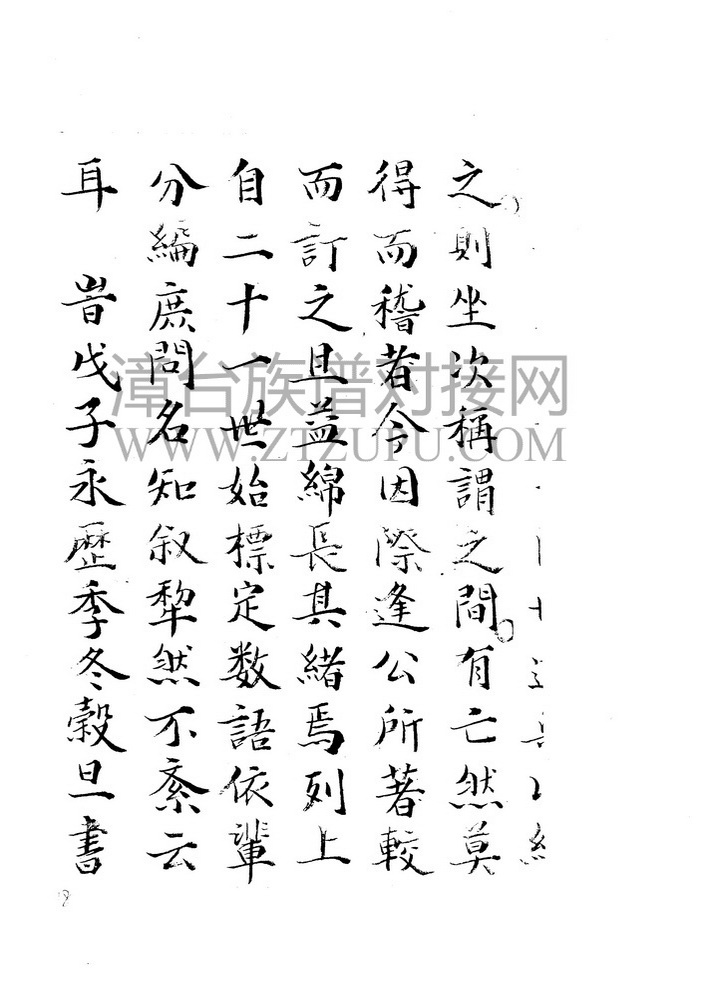 之則坐次稱謂之間有亡然莫
得而稽者今因際逢公所著較
而訂之且益綿長其緒焉列上
自二十一世始標定数語依輩
分編庶問名知叙犂然不紊云
耳　旹戊子永歷季冬穀旦書
漳台族谱对接网
WWW.ZTZUFU.COM